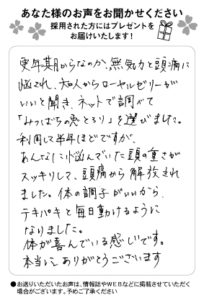 あなた様のお声をお聞かせください
採用された方にはプレゼントを
お届けいたします!
更年期からなのか、無気力と頭痛に
悩まされ、知人からローヤルゼリーが
いいと聞き、ネットで調べて
「みつばちの恵とろり」を選びました。
利用して半年ほどですが、
あんなに悩んでいた頭の重さが
スッキリして、頭痛から解放され
ました。体の調子がいいから、
テキパキと毎日動けるように
なりました。
体が喜んでいる感じです。
本当にありがとうございます
●お送りいただいたお声は、情報誌やWEBなどに掲載させていただく
場合がございます。予めご了承ください